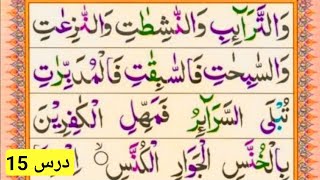 وَالتَّرَآئِبِ وَالنّٰشِطٰتِ وَالنّٰزِعٰتِ
وَالسّٰبِحٰتِ فَالسّٰبِقٰتِ فَالْمُدَبِّرٰتِ
تُبْلَى السَّرَآئِرُ فَمَهِّلِ الْكٰفِرِيْنَ
بِالْخُنَّسِ الْجَوَارِ الْكُنَّسِ
درس 15